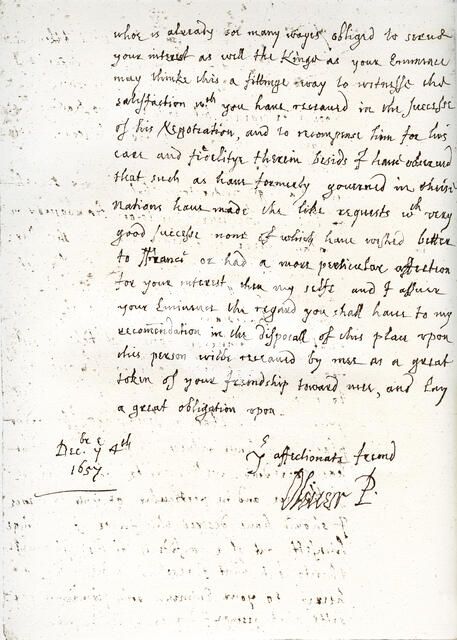 whoe is already soe many wayes obliged to serue
your interest as well the Kings as your Eminence
may thinke this a fittinge way to witnesse the
satisfaction wth you have receaued in the successe
of his Negotiation, and to recompense him for his
care and fidelitye therein besids I haue obserued
that such as haue formerly gouerned in theise
Nations haue made the like requests wth very
good successe none of which haue wished better
to ffrance or had a more particular affection
for your interest then my selfe and I assure
your Eminence the regard you shall haue to my
recomendation in the disposall of this place upon
this person wilbe receaued by mee as a great
token of your freindship toward mee, and Lay
a great obligation upon
Decbre ye 4th
1657
Yr affectionate freind
Oliver P.